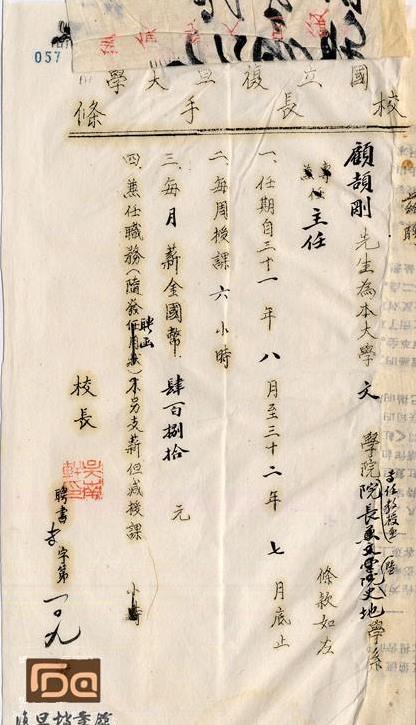 057
國立復旦大學
校長手條
顧頡剛先生為本大學文學院院長兼文學院史地學系
專任教授兼
主任 條款如左
一、任期自三十一年八月至三十二年七月底止
二、每周授課六小時
三、每月薪金國幣肆百捌拾元
四、兼任職務(隨發聘函)不另支薪但減授課 小時
校長
聘書 字第一〇九